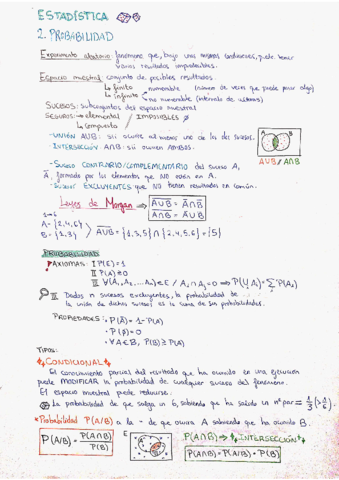 ESTADÍSTICA
2. PROBABILIDAD
Experimento aleatorio: fenómeno que, bajo unas mismas condiciones, puede tener
varios resultados impredecibles.
Espacio muestral: conjunto de posibles resultados.
↳ finito
↳ infinito numerable (número de veces que puede pasar algo)
↳ no numerable (intervalo de
SUCESOS: subconjuntos del espacio muestral
SEGUROS → elemental / IMPOSIBLES ∅
↳ compuesto
- UNIÓN A∪B: si ocurre al menos uno de los dos sucesos.
- INTERSECCIÓN A∩B: si ocurren AMBOS.
A B
A∪B / A∩B
- Suceso CONTRARIO/COMPLEMENTARIO del suceso A,
Ā, formado por los elementos que NO están en A.
- Sucesos EXCLUYENTES que NO tienen resultados en común.
Leyes de Morgan ⇒ \overline{A∪B} = Ā∩B̄
\overline{A∩B} = Ā∪B̄
1-6
A = {2,4,6}
B = {1,3} \overline{A∪B} = {1,3,5} ∩ {2,4,5,6} = {5}
PROBABILIDAD
AXIOMAS: I P(E)=1
II P(A)≥0
III ∀(A₁,A₂,...Aₙ)∈E / Aᵢ∩Aⱼ=∅ ⟹ P(∪Aᵢ)=ΣP(Aᵢ)
III Dados n sucesos excluyentes, la probabilidad de
la unión de dichos sucesos es la suma de sus probabilidades.
PROPIEDADES: • P(Ā) = 1 - P(A)
• P(∅) = 0
• ∀A⊂B, P(B) ≥ P(A)
TIPOS:
CONDICIONAL
El conocimiento parcial del resultado que ha ocurrido en una ejecución
puede MODIFICAR la probabilidad de cualquier suceso del fenómeno.
El espacio muestral puede reducirse.
La probabilidad de que salga un 6, sabiendo que ha salido un nº par = 1/3 (> 1/6)
* Probabilidad P(A/B) a la - de que ocurra A sabiendo que ha ocurrido B.
P(A/B) = P(A∩B) / P(B)
E
P(A∩B) ⇒ INTERSECCIÓN
P(A∩B) = P(A/B) · P(B)